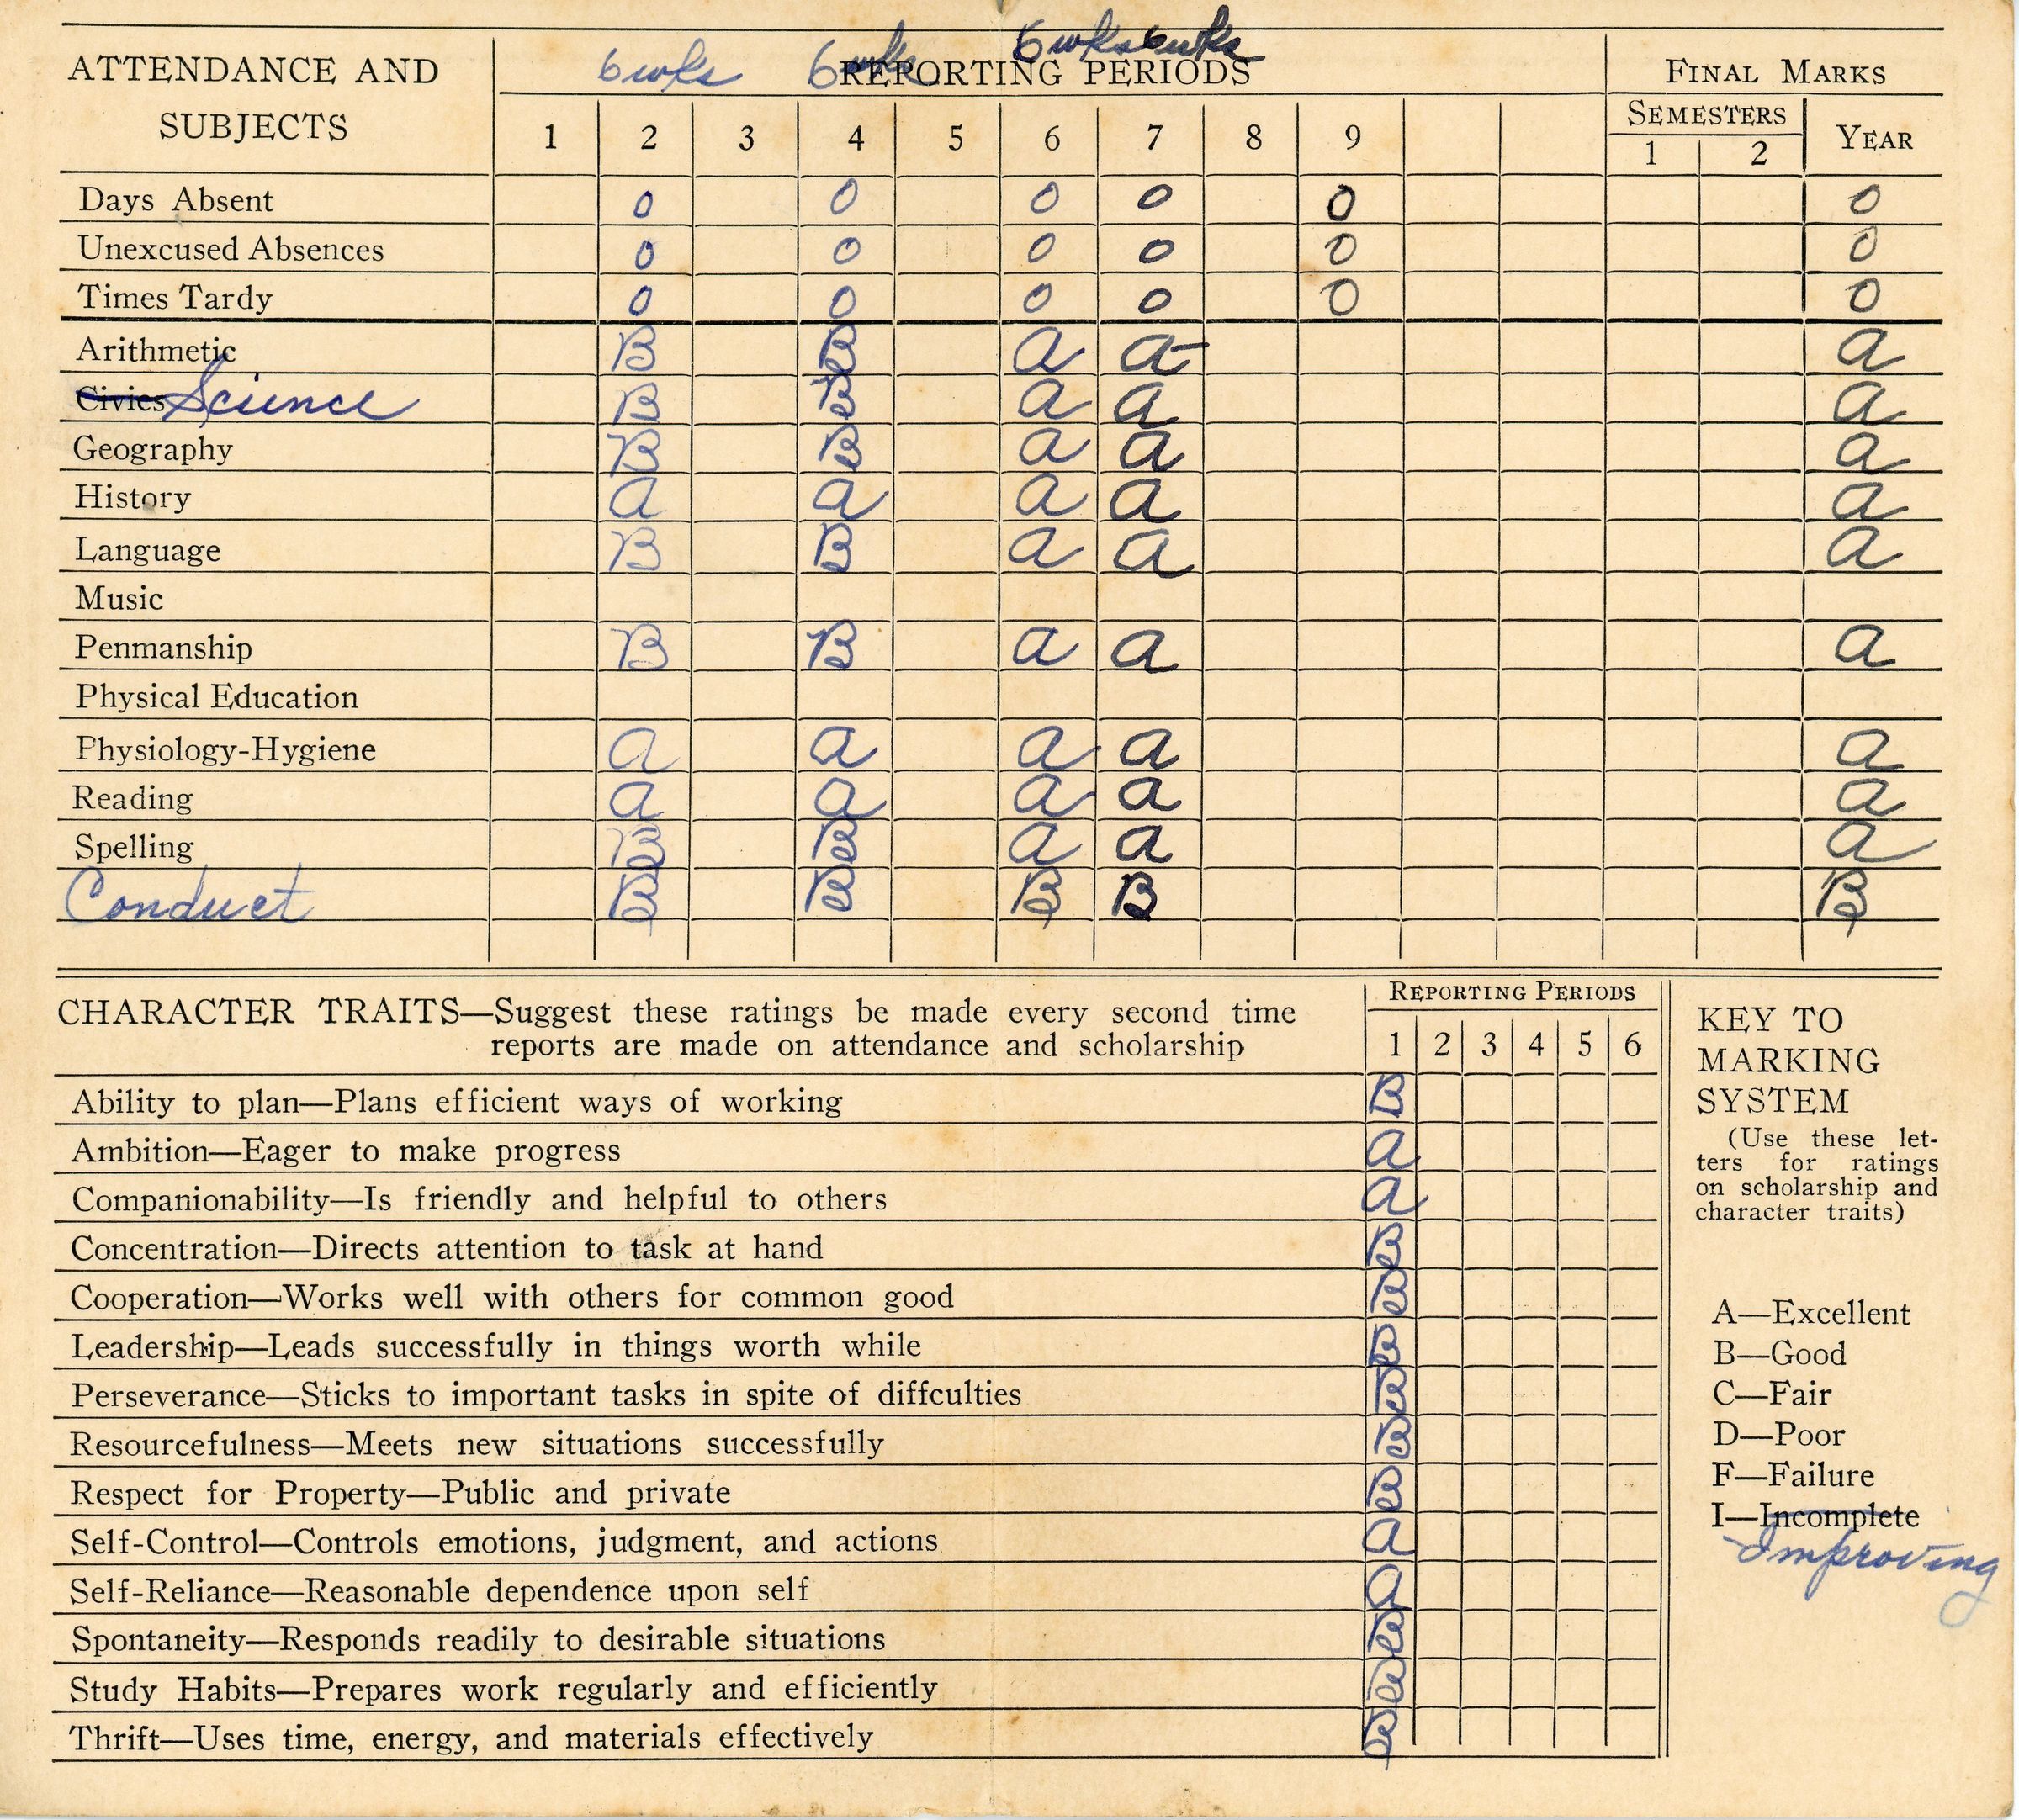 6 wks 6 wks 6 wks 6 wks
ATTENDANCE AND SUBJECTS REPORTING PERIODS FINAL MARKS
SEMESTERS YEAR
1 2 3 4 5 6 7 8 9 1 2
Days Absent 0 0 0 0 0 0
Unexcused Absences 0 0 0 0 0 0
Times Tardy 0 0 0 0 0 0
Arithmetic B B a a- a
Civics Science B B a a a
Geography B B a a a
History a a a a a
Language B B a a a
Music
Penmanship B B a a a
Physical Education
Physiology-Hygiene a a a a a
Reading a a a a a
Spelling B B a a a
Conduct B B B B B
CHARACTER TRAITS—Suggest these ratings be made every second time
reports are made on attendance and scholarship
REPORTING PERIODS
1 2 3 4 5 6
Ability to plan—Plans efficient ways of working B
Ambition—Eager to make progress a
Companionability—Is friendly and helpful to others a
Concentration—Directs attention to task at hand B
Cooperation—Works well with others for common good B
Leadership—Leads successfully in things worth while B
Perseverance—Sticks to important tasks in spite of diffculties B
Resourcefulness—Meets new situations successfully B
Respect for Property—Public and private B
Self-Control—Controls emotions, judgment, and actions a
Self-Reliance—Reasonable dependence upon self a
Spontaneity—Responds readily to desirable situations B
Study Habits—Prepares work regularly and efficiently B
Thrift—Uses time, energy, and materials effectively B
KEY TO
MARKING
SYSTEM
(Use these let-
ters for ratings
on scholarship and
character traits)
A—Excellent
B—Good
C—Fair
D—Poor
F—Failure
I—Incomplete
Improving